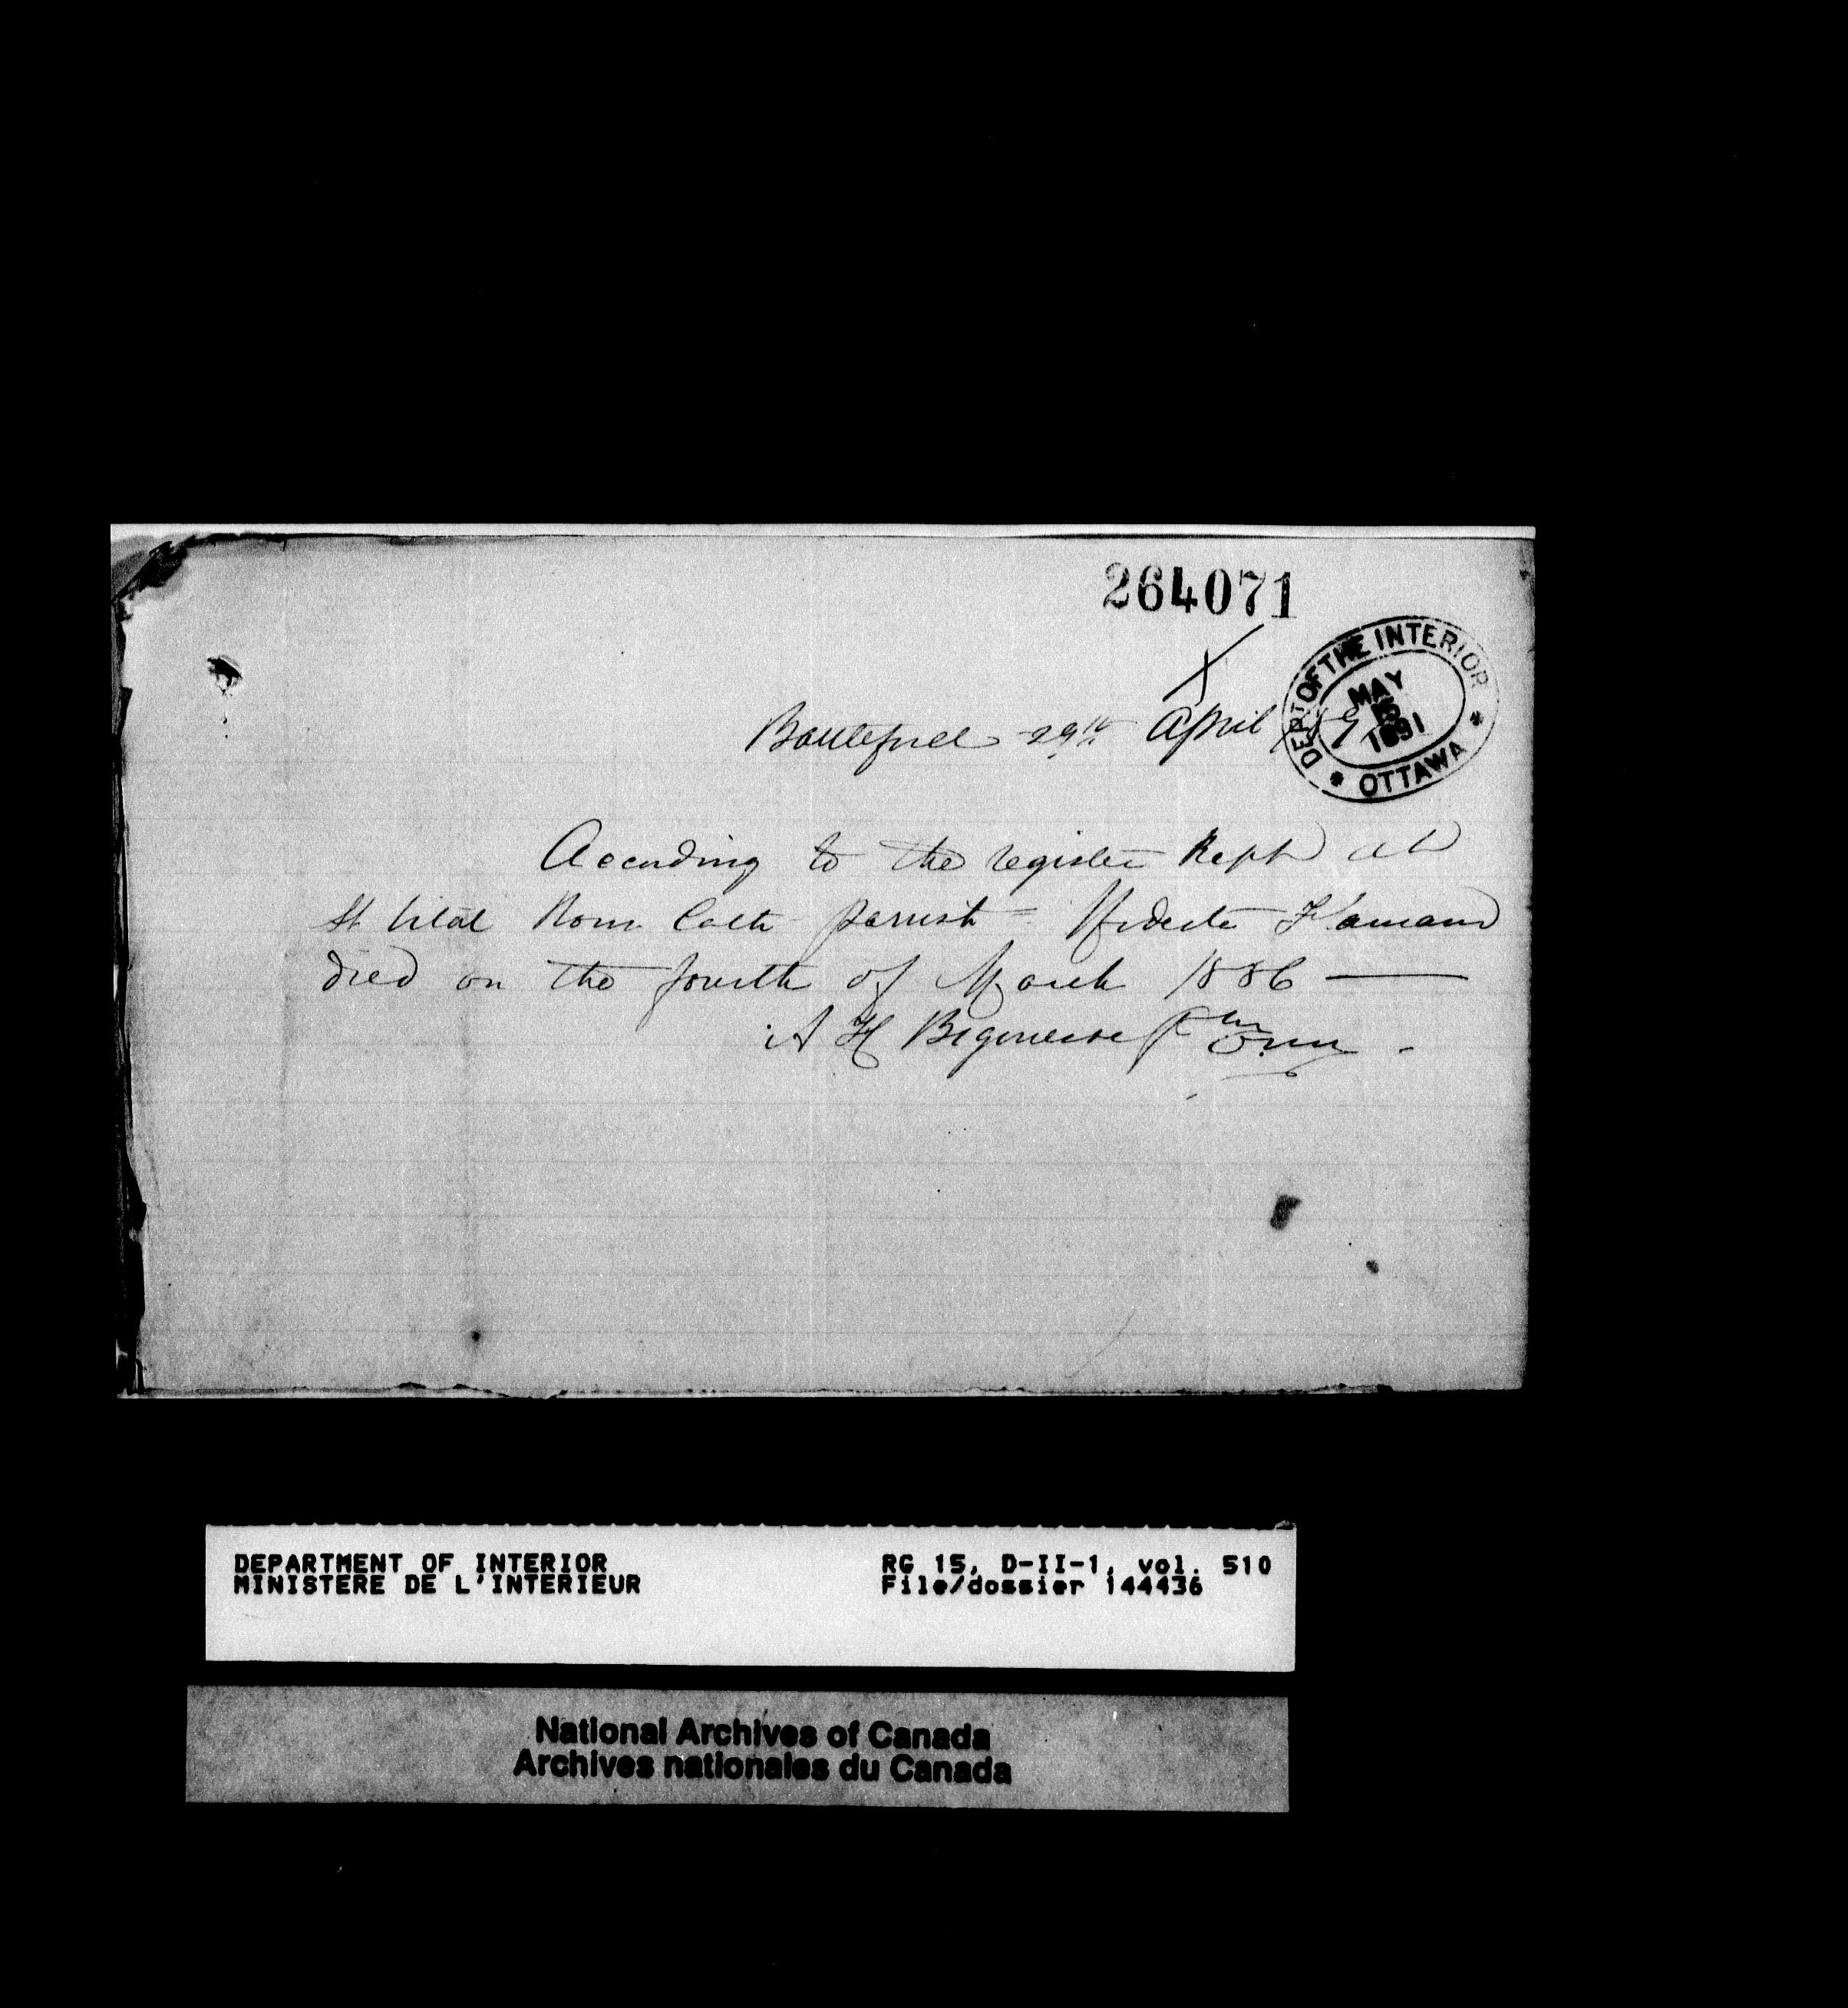 264071
DEPT OF THE INTERIOR
MAY
1891
OTTAWA
Battleford 29th April 189
According to the register Kept at
St Vital Rom. Cath parish = Modeste
died on the fourth of March 1886
A H Bigonesse Ptr omi
DEPARTMENT OF INTERIOR
MINISTERE DE L'INTERIEUR
RG 15, D-II-1, vol. 510
File/dossier 144436
National Archives of Canada
Archives nationales du Canada